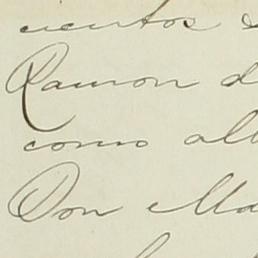 cuentos
Ramon d
como alb
Don Ma